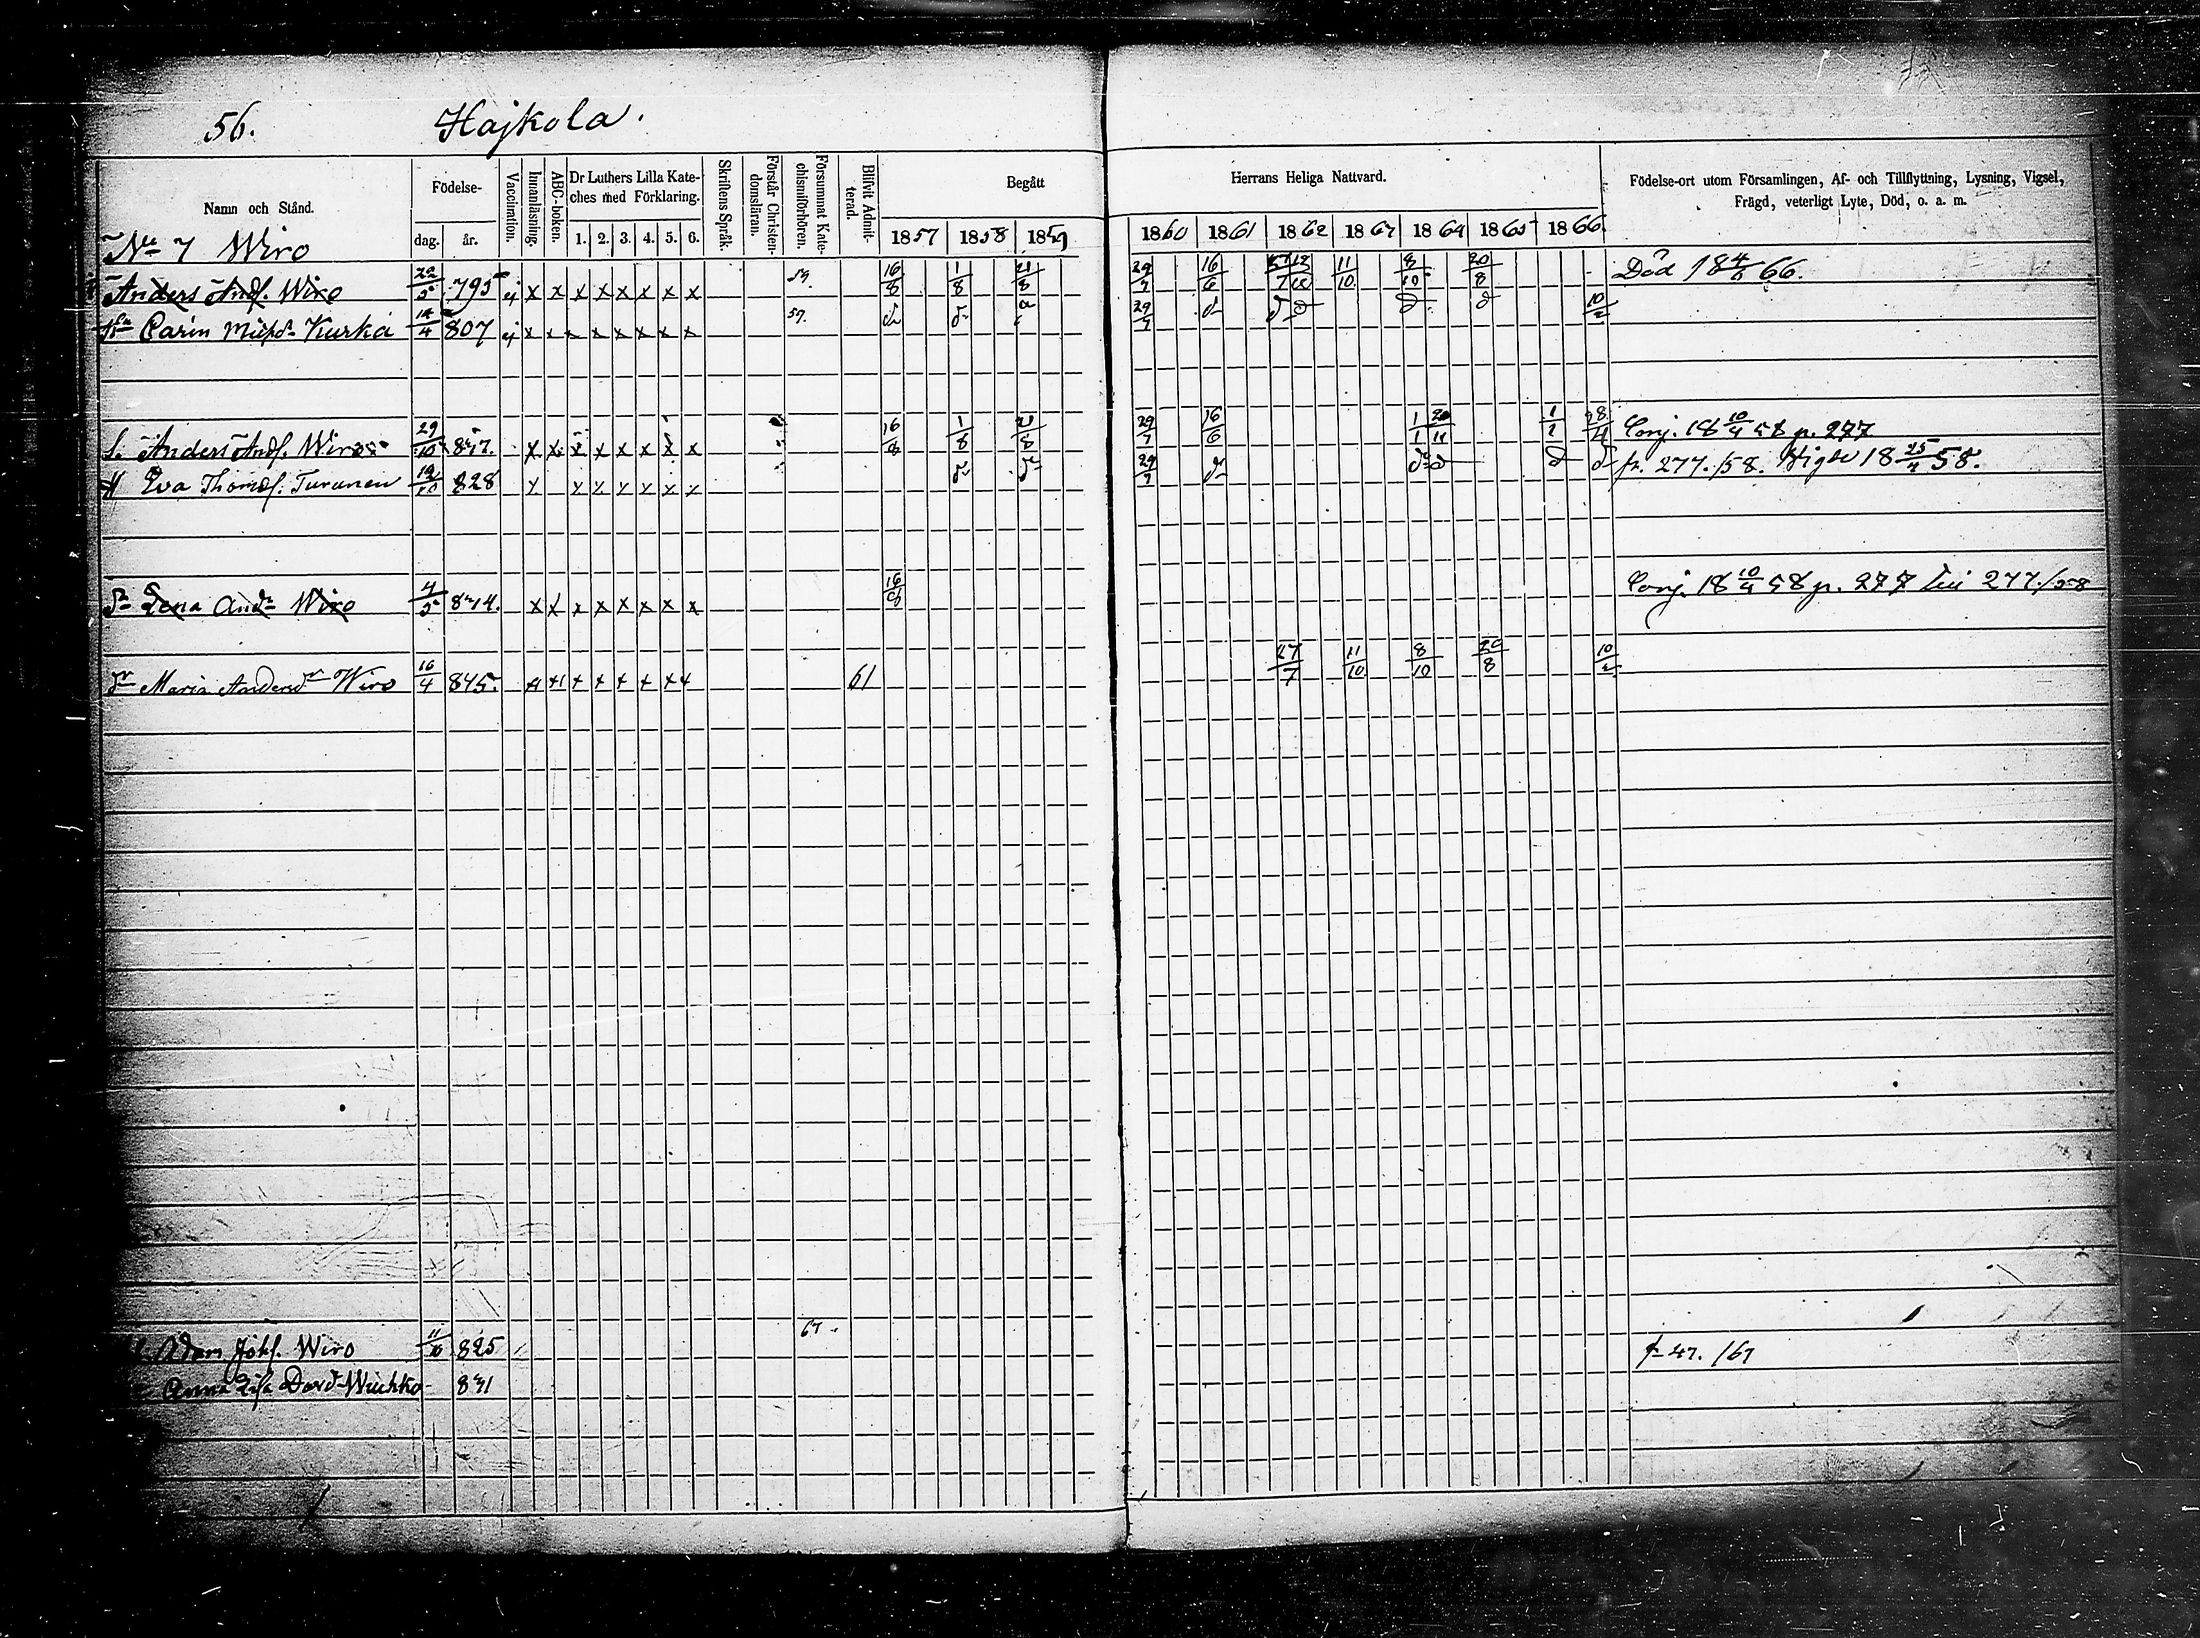 56. Hajkola.
Namn och Stånd. Födelse- dag. år. Vaccination. Innanläsning. ABC-boken. Dr Luthers Lilla Kateches med Förklaring. 1. 2. 3. 4. 5. 6. Skriftens Språk. Förstår Christendomsläran. Försummat Katechismiförhören. Blifvit Admitterad. Begått 1857 1858 1859
Herrans Heliga Nattvard. 1860 1861 1862 1863 1864 1865 1866.
Födelse-ort utom Församlingen, Af- och Tillflyttning, Lysning, Vigsel,
Frägd, veterligt Lyte, Död, o. a. m.
No 7 Wiro
Anders Andf. Wiro 22/5 795 ej x x x x x x x x 59. 16/8 1/8 21/8 29/7 16/6 11/10 8/10 20/8 Död 18 4/6 66.
Carin Kurka 14/4 807 ej x x x x x x x x 57. 29/7 10/2
S. Anders Andf. Wiro 29/10 x x x x x x x x 16/8 1/8 21/8 29/7 16/6 1/1 20/11 1/1 28/4 Conj. 18 10/4 58 p. 277
H Eva Thomdf. Turunen 12/10 828 x x x x x x x 29/7 fr. 277./58. Vigde 18 25/4 58.
Dr Lena Andr Wiro 4/5 x x x x x x x x 16/8 Conj. 18 10/4 58 p. 277 Till 277./58
Dr Maria Andersdr Wiro 16/4 845. x x x x x x x 61 27/7 11/10 8/10 20/8 10/2
Adam Johf. Wiro 11/10 825 67. fr 47. /67
Anna Lisa Davd Wiuhko 831